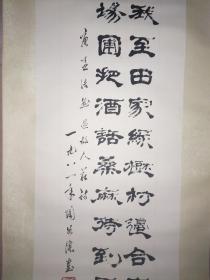 我至田家綠樹村邊合
場圃把酒話桑麻待到
孟浩然過故人莊詩
一九八一年 書